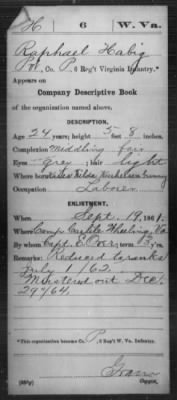 H 6 W. Va.
Raphael Habig
Pvt., Co. P, 6 Reg't Virginia Infantry.*
Appears on
Company Descriptive Book
of the organization named above.
DESCRIPTION.
Age 24 years; height 5 feet 8 inches.
Complexion Middling fair
Eyes grey; hair light
Where born Germany
Occupation Laborer
ENLISTMENT.
When Sept. 19, 1861.
Where Camp Carlile Wheeling, Va.
By whom Capt. ; term 3 y'rs.
Remarks: Reduced to ranks
July 1/62.
Mustered out Dec.
29/64.
*This organization became Co. P, 6 Reg't W. Va. Infantry.
Copyist.